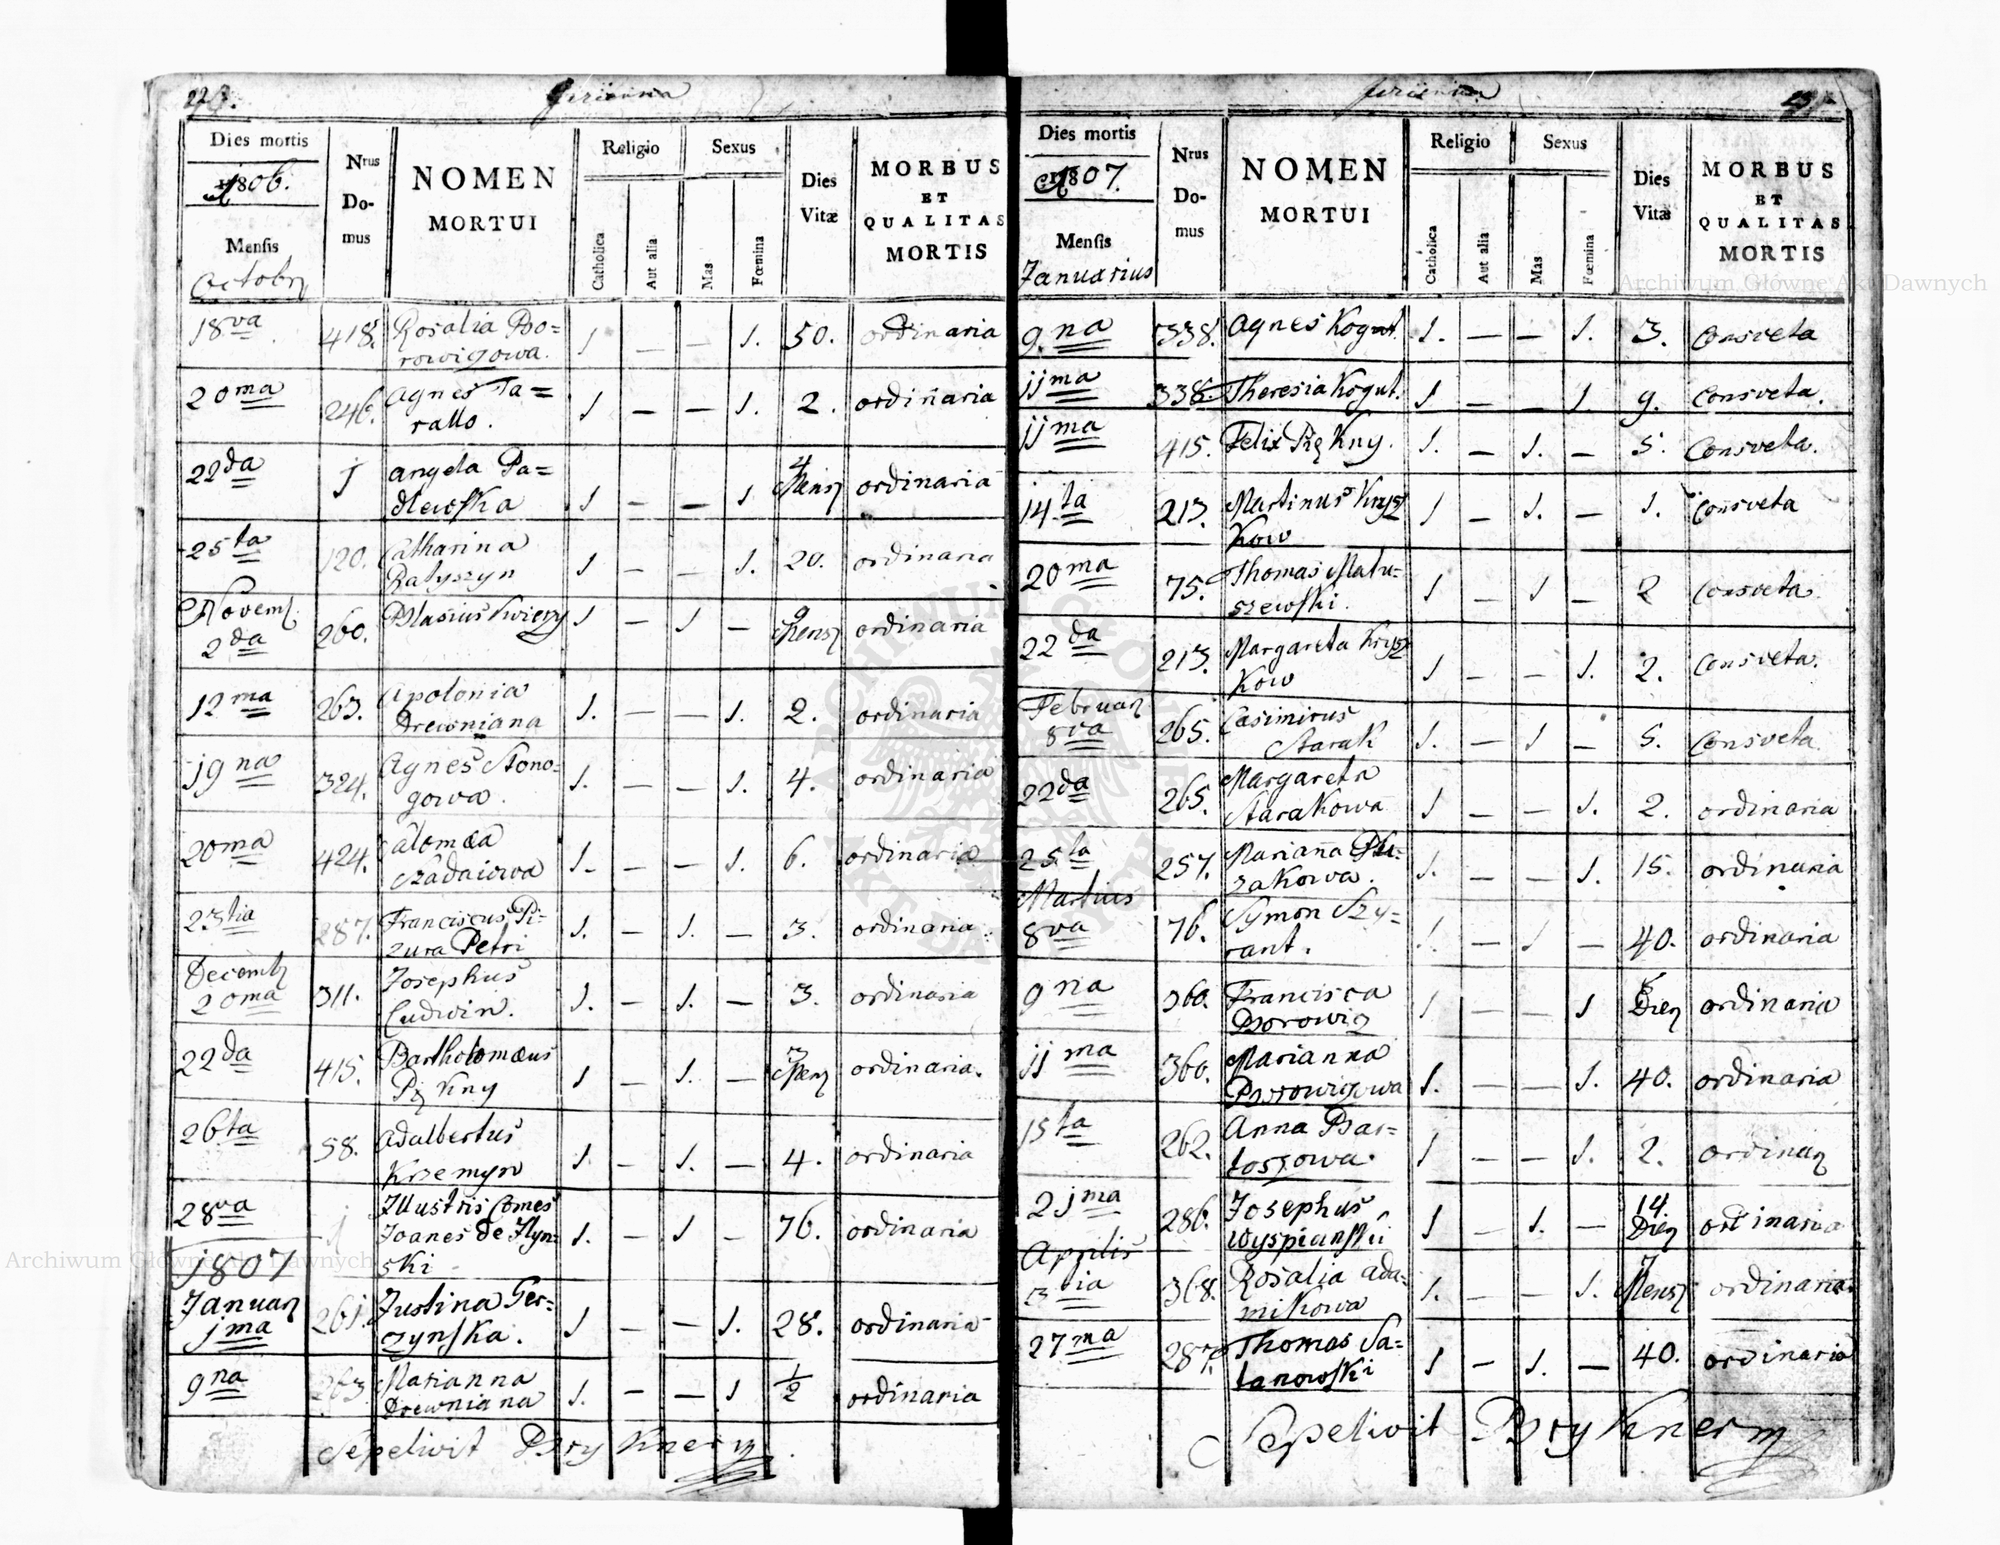 Dies mortis
1806.
Mensis
Nrus
Do-
mus
NOMEN
MORTUI
Religio
Catholica
Aut alia
Sexus
Mas
Fœmina
Dies
Vitæ
MORBUS
ET
QUALITAS
MORTIS
18va 418. Rosalia Bo= 1 — — 1. 50. ordinaria
rowigowa.
20ma 246. Agnes Ta= 1 — — 1. 2. ordinaria
rallo.
22da 1 Angela Pa= 1 — — 1 4 Mens ordinaria
dlewska
25ta 120. Catharina 1 — — 1. 20. ordinaria
Ratyszyn
Novem
2da 260. Blasius 1 — 1 — 9 Mens ordinaria
12ma 263. Apolonia 1. — — 1. 2. ordinaria
Drewniana
19na 324. Agnes Stono= 1. — — 1. 4. ordinaria
gowa.
20ma 424. 1. — — 1. 6. ordinaria
23tia 287. Franciscus Pi- 1. — 1. — 3. ordinaria
zura Petri
Decemb
20ma 311. Josephus 1. — 1. — 3. ordinaria
Ludwin.
22da 415. Bartholomæus 1 — 1. — 3 Mens ordinaria.
Piękny
26ta 58. Adalbertus 1. — 1. — 4. ordinaria
Krzemyn
28va 1 Illustris Comes
Joanes de Ilyn= 1. — 1 — 76. ordinaria
ski
1807
Januar
1ma 261. Justina Ger= 1 — — 1. 28. ordinaria
czynska.
9na 263. Marianna 1. — — 1 1/2 ordinaria
Drewniana
Sepelivit Brykner
Dies mortis
1807.
Mensis
Januarius
Nrus
Do-
mus
NOMEN
MORTUI
Religio
Catholica
Aut alia
Sexus
Mas
Fœmina
Dies
Vitæ
MORBUS
ET
QUALITAS
MORTIS
9.na 338. Agnes Kogut. 1. — — 1. 3. Consveta
11ma 338. Theresia Kogut. 1 — — 1. 9. Consveta.
11ma 415. Felix Piękny. 1. — 1. — 5. Consveta.
14.ta 213. Martinus Krysz 1 — 1. — 1. Consveta
kow
20ma 75. Thomas Matu= 1 — 1 — 2 Consveta.
szewski.
22da 213. Margareta Krysz 1 — — 1. 2. Consveta.
kow
Februar
8va 265. Casimirus 1. — 1 — 5. Consveta
Starak
22da 265. Margareta 1 — — 1. 2. ordinaria
Starakowa
25ta 257. Marianna 1. — — 1. 15. ordinaria
zakowa.
Martius
8va 76. Symon Szy= 1. — 1 — 40. ordinaria
rant.
9na 360. Francisca 1 — — 1 Die ordinaria
Borowig
11ma 360. Marianna 1. — — 1. 40. ordinaria
Borowigowa
15ta 262. Anna Bar= 1 — — 1. 2. ordinar
toszowa.
21ma 286. Josephus 1 — 1. — 14. Die ordinaria
Wyspianski
Aprilis
3tia 368. Rosalia Ada= 1. — — 1. 7 Mens ordinaria
mikowa
27ma 287. Thomas Sa= 1 — 1. — 40. ordinaria
lanowski
Sepelivit Brykner
Archiwum Główne Akt Dawnych
Archiwum Główne Akt Dawnych
ARCHIWUM GŁÓWNE AKT DAWNYCH